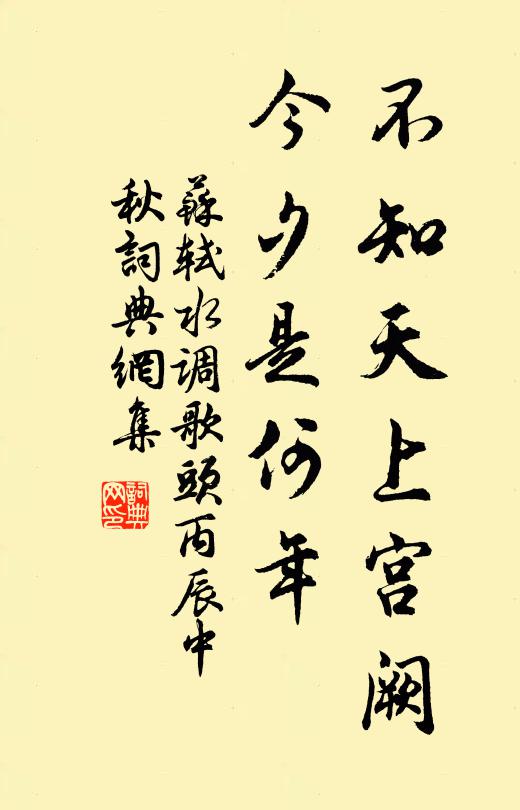 不知天上宫阙
今夕是何年
蘇軾水调歌頭丙辰中
秋詞典網集
詞典
网印